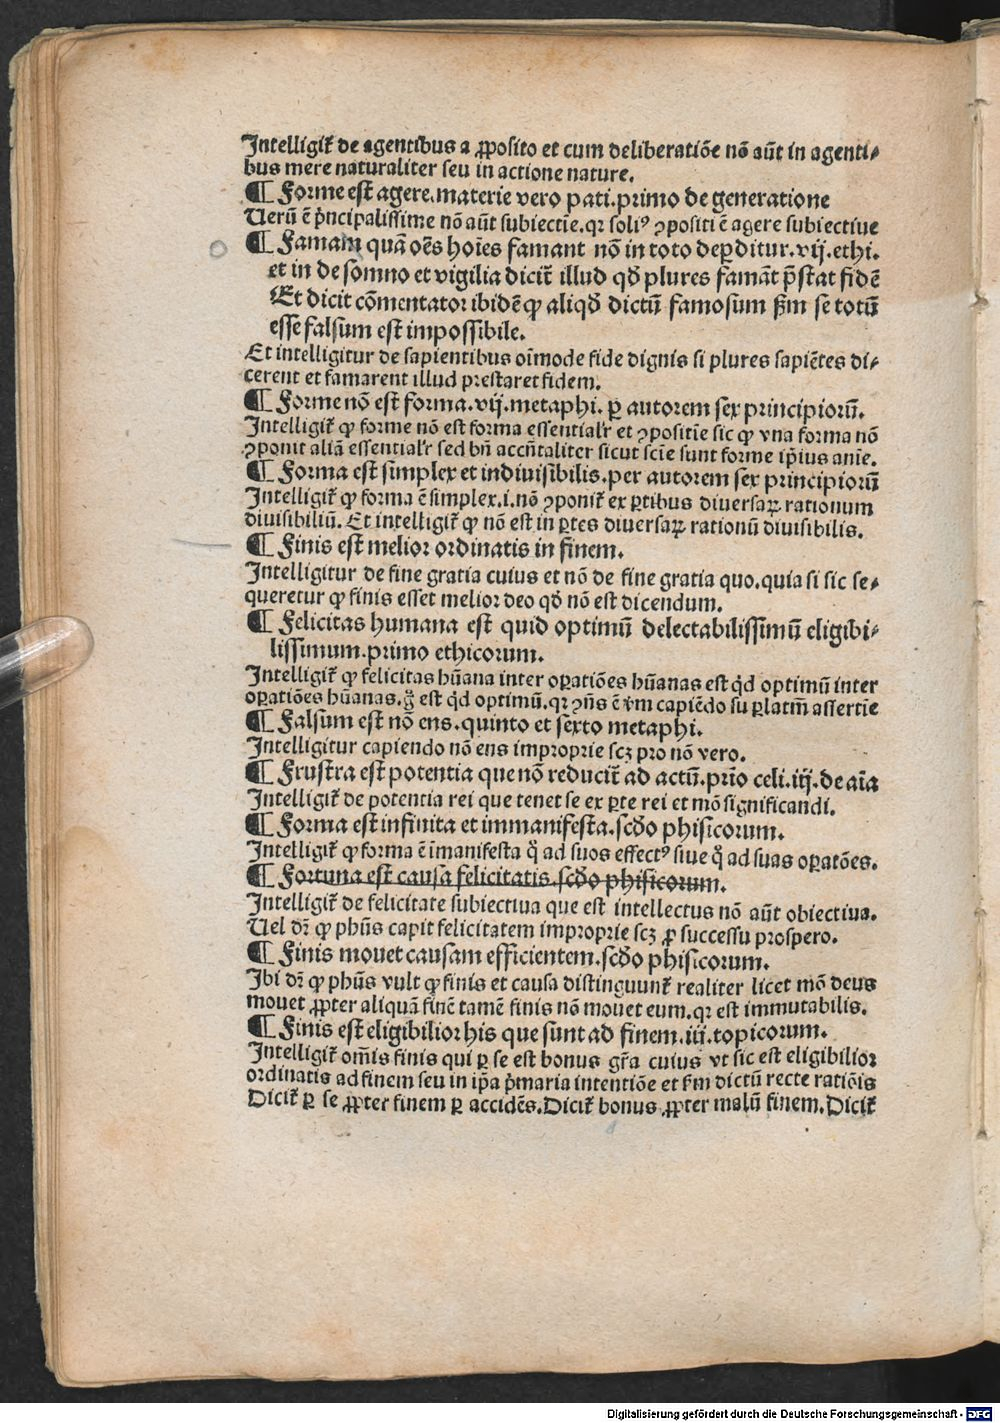 Intelligit᷑ de agentibus a ꝓposito et cum deliberatiōe nō aūt in agenti⸗
bus mere naturaliter seu in actione nature.
¶ Forme est agere.materie vero pati.primo de generatione
Uerū ē p̄ncipalissime nō aūt subiectīe.qꝛ soliꝰ ꝯpositi ē agere subiectiue
¶ Famam quā oēs hoīes famant nō in toto deꝑditur.vij.ethi.
et in de somno et vigilia dicit᷑ illud qd̄ plures famāt p̄stat fidē
Et dicit cōmentator ibidē ꝙ aliqd̄ dictū famosum ẜm se totū
esse falsum est impossibile.
Et intelligitur de sapientibus oīmode fide dignis si plures sapiētes di⸗
cerent et famarent illud prestaret fidem.
¶ Forme nō est forma.vij.metaphi. ꝑ autorem sex principiorū.
Intelligit᷑ ꝙ forme nō est forma essential'r et ꝯpositīe sic ꝙ vna forma nō
ꝯponit aliā essential'r sed bn̄ accn̄taliter sicut scīe sunt forme ip̄ius anīe.
¶ Forma est simplex et indiuisibilis.per autorem sex principiorū
Intelligit᷑ ꝙ forma ē simplex.i.nō ꝯponit᷑ ex ꝑtibus diuersaꝝ rationum
diuisibiliū. Et intelligit᷑ ꝙ nō est in ꝑtes diuersaꝝ rationū diuisibilis.
¶ Finis est melior ordinatis in finem.
Intelligitur de fine gratia cuius et nō de fine gratia quo.quia si sic se⸗
queretur ꝙ finis esset melior deo qd̄ nō est dicendum.
¶ Felicitas humana est quid optimū delectabilissimū eligibi⸗
lissimum.primo ethicorum.
Intelligit᷑ ꝙ felicitas hūana inter oꝑatiōes hūanas est qd̄ optimū inter
oꝑatiōes hūanas.g̊ est qd̄ optimū.qꝛ ꝯn̄s ē v̄m capiēdo suꝑlatm̄ assertīe
¶ Falsum est nō ens.quinto et sexto metaphi.
Intelligitur capiendo nō ens improprie scꝫ pro nō vero.
¶ Frustra est potentia que nō reducit᷑ ad actū.prīo celi.iij.de aīa
Intelligit᷑ de potentia rei que tenet se ex ꝑte rei et mō significandi.
¶ Forma est infinita et immanifesta.scd̄o phisicorum.
Intelligit᷑ ꝙ forma ē īmanifesta q̊ ad suos effectꝰ siue q̊ ad suas oꝑatōes.
¶ Fortuna est causa felicitatis.scd̄o phisicorum.
Intelligit᷑ de felicitate subiectiua que est intellectus nō aūt obiectiua.
Uel dr̄ ꝙ phūs capit felicitatem improprie scꝫ ꝓ successu prospero.
¶ Finis mouet causam efficientem.scd̄o phisicorum.
Ibi dr̄ ꝙ phūs vult ꝙ finis et causa distinguunt᷑ realiter licet mō deus
mouet ꝓpter aliquā finē tamē finis nō mouet eum.qꝛ est immutabilis.
¶ Finis est eligibilior his que sunt ad finem.iij.topicorum.
Intelligit᷑ om̄is finis qui ꝑ se est bonus gr̄a cuius vt sic est eligibilior
ordinatis ad finem seu in ip̄a p̄maria intentiōe et ẜm dictū recte ratiōis
Dicit᷑ ꝑ se ꝓpter finem ꝑ accidēs.Dicit᷑ bonus ꝓpter malū finem.Dicit᷑
Digitalisierung gefördert durch die Deutsche Forschungsgemeinschaft - DFG